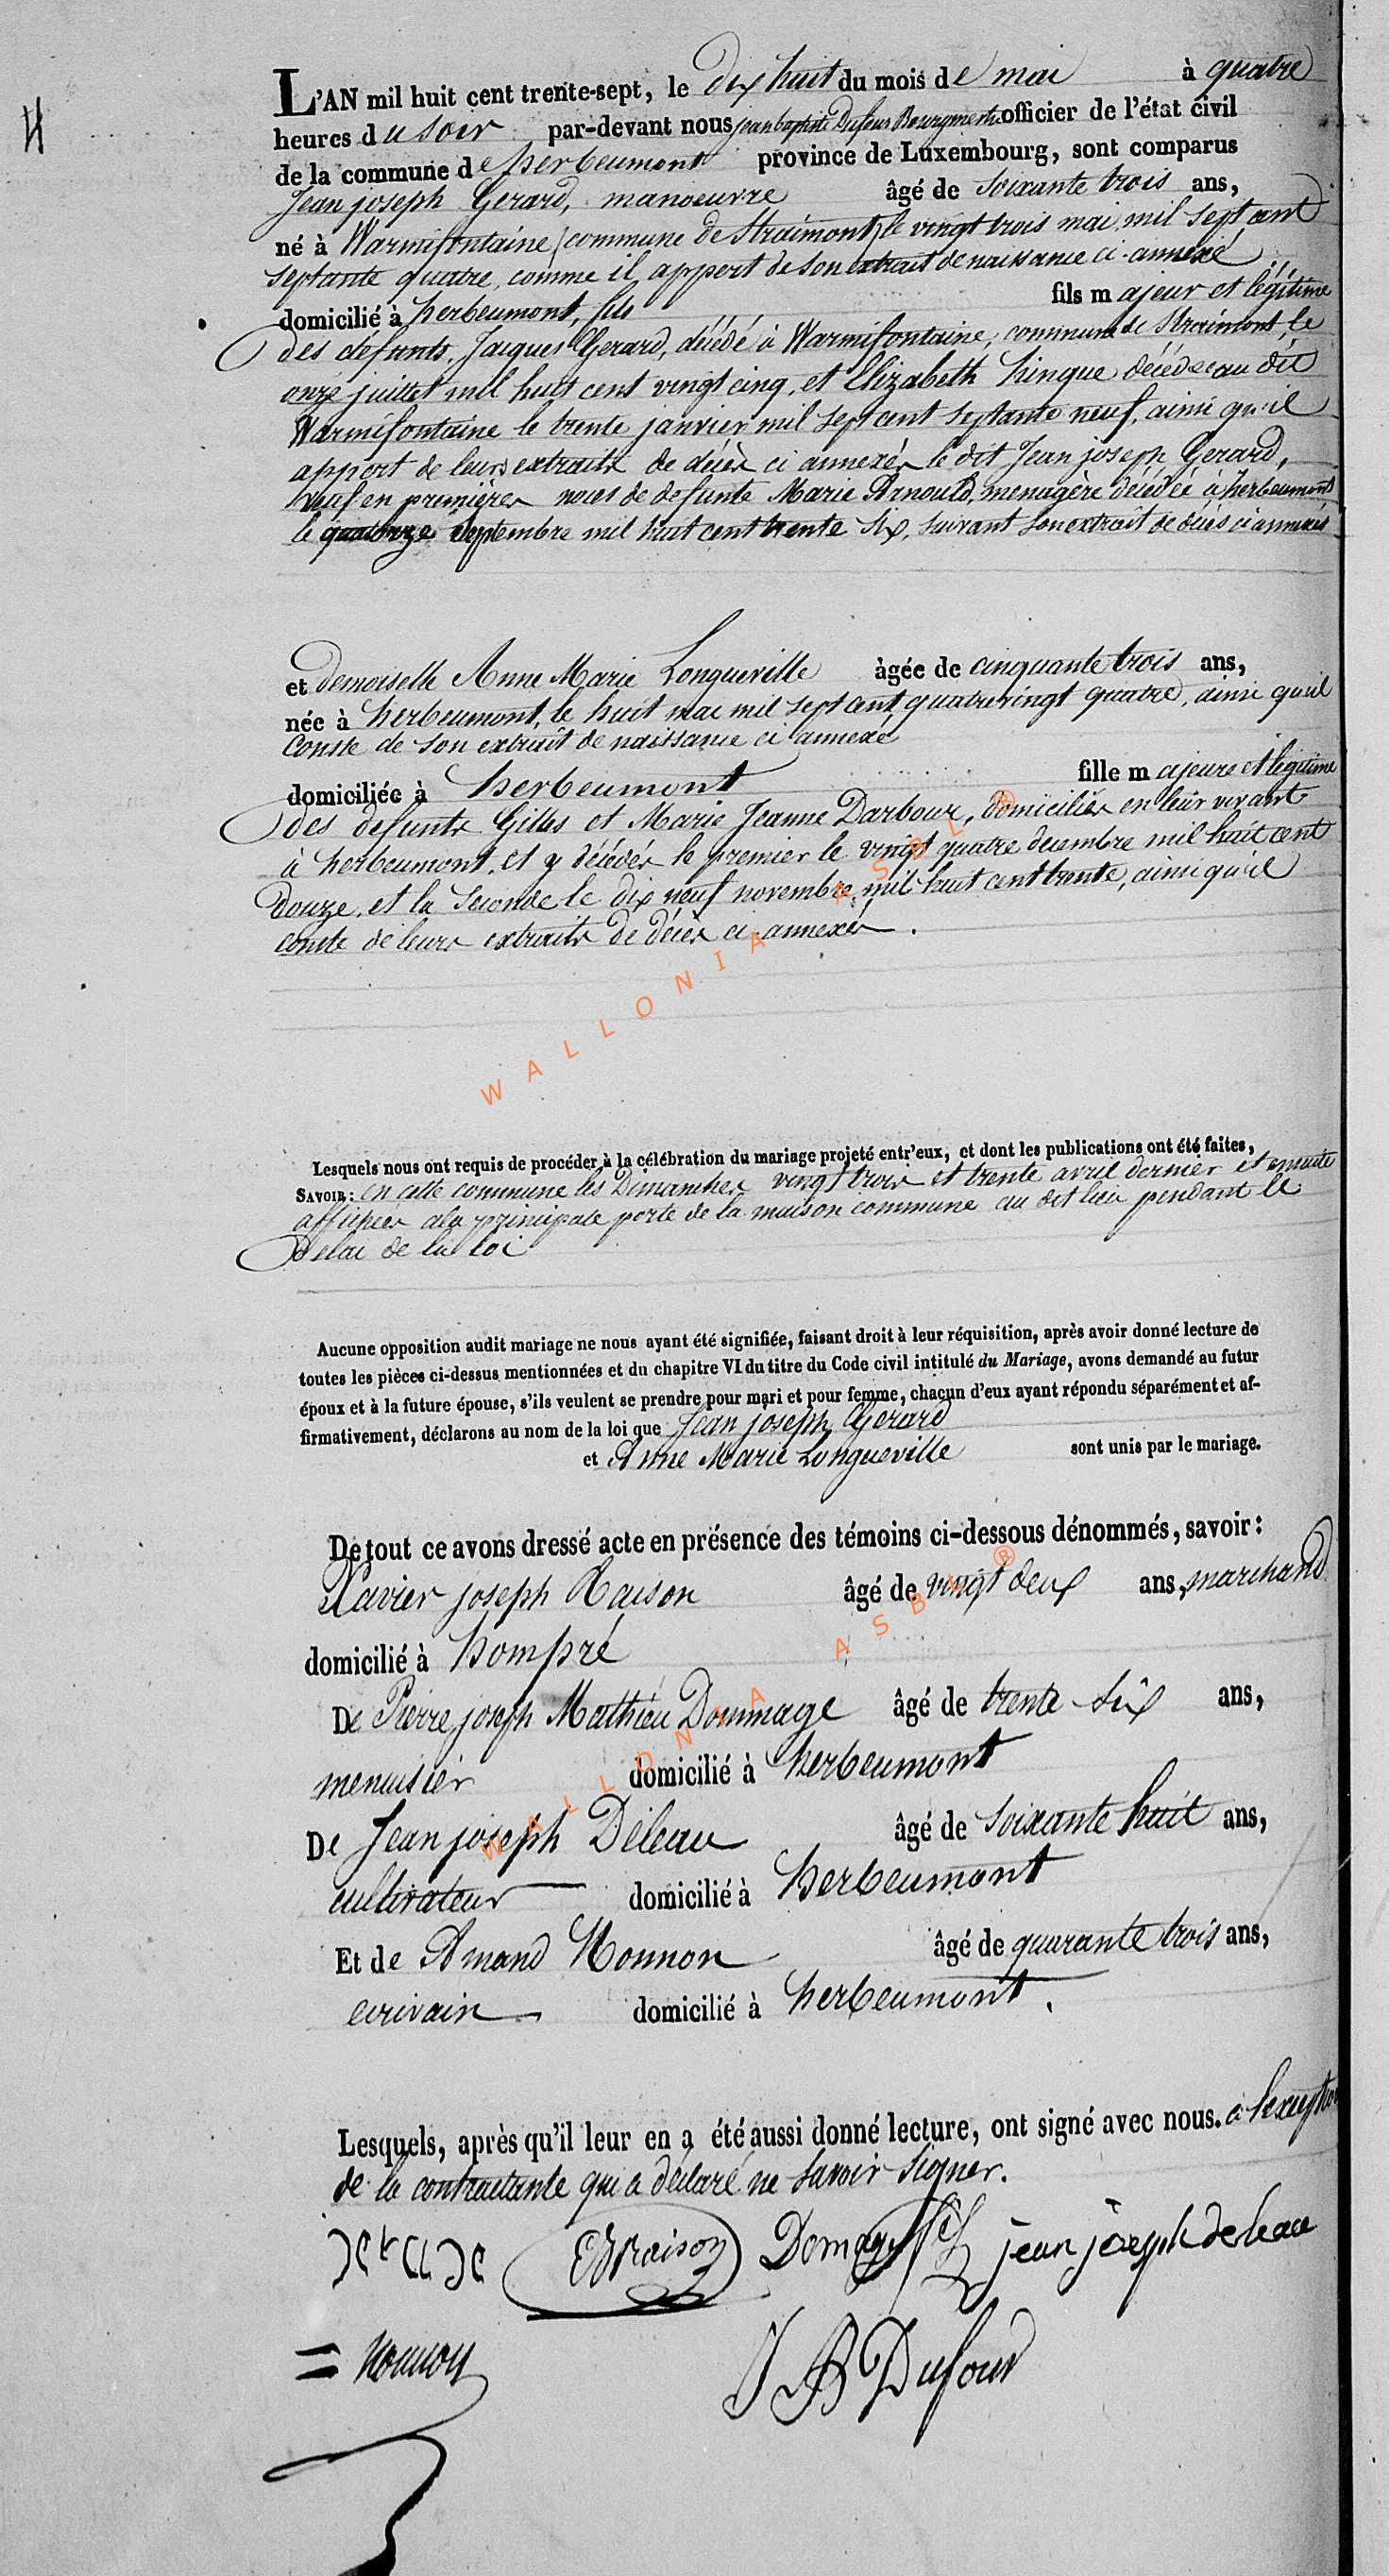 L'AN mil huit cent trente-sept, le dix huit du mois de mai à quatre
heures du soir par-devant nous jean baptiste Dufour Bourgmestre officier de l'état civil
de la commune de herbeumont province de Luxembourg, sont comparus
Jean joseph Gerard, manoeuvre âgé de soixante trois ans,
né à Warmifontaine (commune de Straimont) le vingt trois mai mil sept cent
septante quatre, comme il apport de son extrait de naissance ci-annexé
domicilié à herbeumont, fils fils majeur et légitime
des défunts, Jacques Gerard, décédé à Warmifontaine, commune de Straimont, le
onze juillet mil huit cent vingt cinq, et Elizabeth hinque décédée au dit
Warmifontaine le trente janvier mil sept cent septante neuf, ainsi qu'il
apport de leurs extraits de décès ci annexés le dit Jean joseph Gerard,
veuf en premières noces de defunte Marie Arnould, menagère décédée à herbeumont
le quatorze septembre mil huit cent trente six, suivant son extrait de décès ci annexés
et demoiselle Anne Marie Longueville âgée de cinquante trois ans,
née à herbeumont, le huit mai mil sept cent quatrevingt quatre, ainsi qu'il
conste de son extrait de naissance ci annexé
domiciliée à herbeumont fille majeure et légitime
des defunts Gilles et Marie Jeanne Darbour, domiciliés en leur vivant
à herbeumont, et y décédés le premier le vingt quatre decembre mil huit cent
douze, et la seconde le dix neuf novembre mil huit cent trente, ainsi qu'il
conste de leurs extraits de décès ci-annexés.
WALLONIA ASBL ®
Lesquels nous ont requis de procéder à la célébration du mariage projeté entr'eux, et dont les publications ont été faites,
SAVOIR: en cette commune les Dimanches vingt trois et trente avril dernier et ensuite
affichées a la principale porte de la maison commune au dit lieu pendant le
delai de la loi
Aucune opposition audit mariage ne nous ayant été signifiée, faisant droit à leur réquisition, après avoir donné lecture de
toutes les pièces ci-dessus mentionnées et du chapitre VI du titre du Code civil intitulé du Mariage, avons demandé au futur
époux et à la future épouse, s'ils veulent se prendre pour mari et pour femme, chacun d'eux ayant répondu séparément et af-
firmativement, déclarons au nom de la loi que Jean joseph Gerard
et Anne Marie Longueville sont unis par le mariage.
De tout ce avons dressé acte en présence des témoins ci-dessous dénommés, savoir:
Xavier joseph Raison âgé de vingt deux ans, marchand
domicilié à hompré
De Pierre joseph Mathieu Dommage âgé de trente six ans,
menuisier domicilié à herbeumont
De Jean joseph Deleau âgé de soixante huit ans,
cultivateur domicilié à herbeumont
Et de Amand Nonnon âgé de quarante trois ans,
ecrivain domicilié à herbeumont.
WALLONIA ASBL ®
Lesquels, après qu'il leur en a été aussi donné lecture, ont signé avec nous. a l'exception
de la contractante qui a déclaré ne savoir signer.
Raison Domage jean joseph desleau
= Nonnon JB Dufour